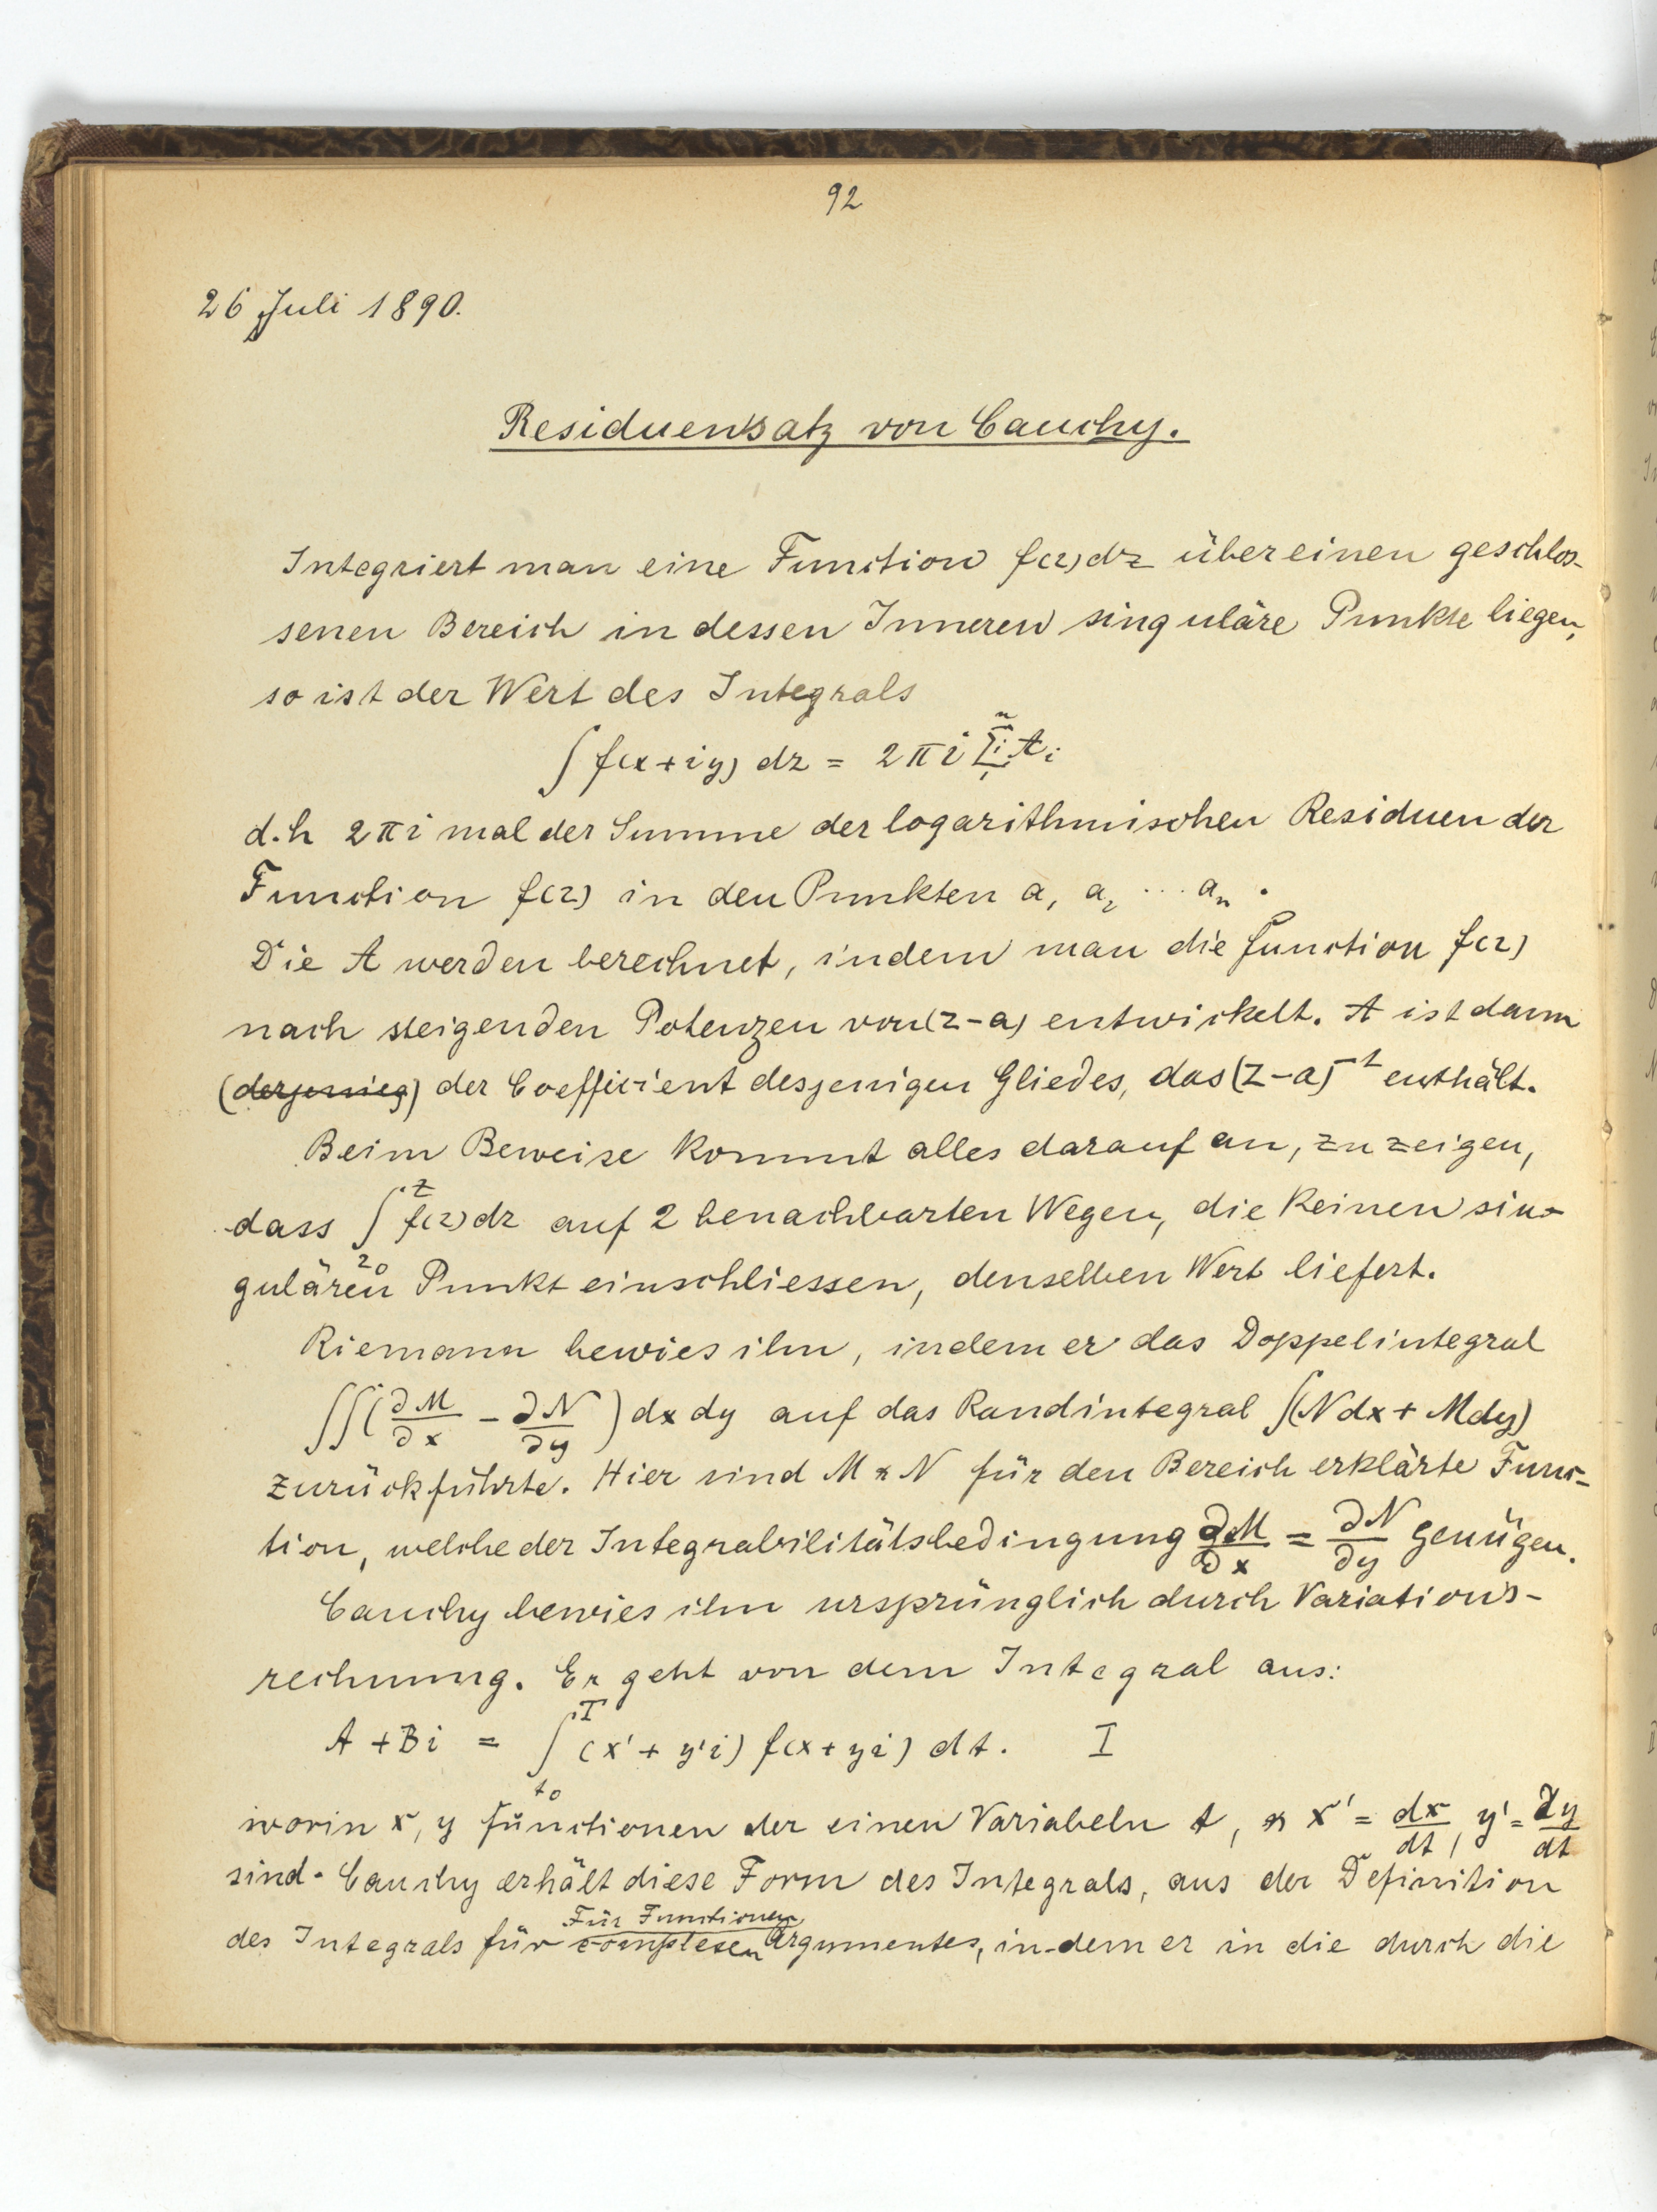 92
26 Juli 1890.
Residuensatz von Cauchy.
Integriert man eine Function f(z)dz über einen geschlos-
senen Bereich in dessen Inneren singuläre Punkte liegen,
so ist der Wert des Integrals
∫ f(x+iy) dz = 2πi Σᵢ₁ⁿ Aᵢ
d.h 2πi mal der Summe der logarithmischen Residuen der
Function f(z) in den Punkten a₁ a₂ ... aₙ.
Die A werden berechnet, indem man die Function f(z)
nach steigenden Potenzen von (z-a) entwickelt. A ist dann
(derjenieg) der Coefficient desjenigen Gliedes, das (z-a)⁻¹ enthält.
Beim Beweise kommt alles darauf an, zu zeigen,
dass ∫_{z₀}^{z} f(z)dz auf 2 benachbarten Wegen, die keinen sin-
gulären Punkt einschliessen, denselben Wert liefert.
Riemann bewies ihn, indem er das Doppelintegral
∫∫(∂M/∂x - ∂N/∂y) dx dy auf das Randintegral ∫(Ndx + Mdy)
zurückführte. Hier sind M & N für den Bereich erklärte Func-
tion, welche der Integrabilitätsbedingung ∂M/∂x = ∂N/∂y genügen.
Cauchy bewies ihn ursprünglich durch Variations-
rechnung. Er geht von dem Integral aus:
A + Bi = ∫_{t₀}^{T} (x' + y'i) f(x + yi) dt. I
worin x, y Functionen der einen Variabeln t, & x' = dx/dt, y' = dy/dt
sind. Cauchy erhält diese Form des Integrals, aus der Definition
Für Functionen
des Integrals für complexen Argumentes, in-dem er in die durch die